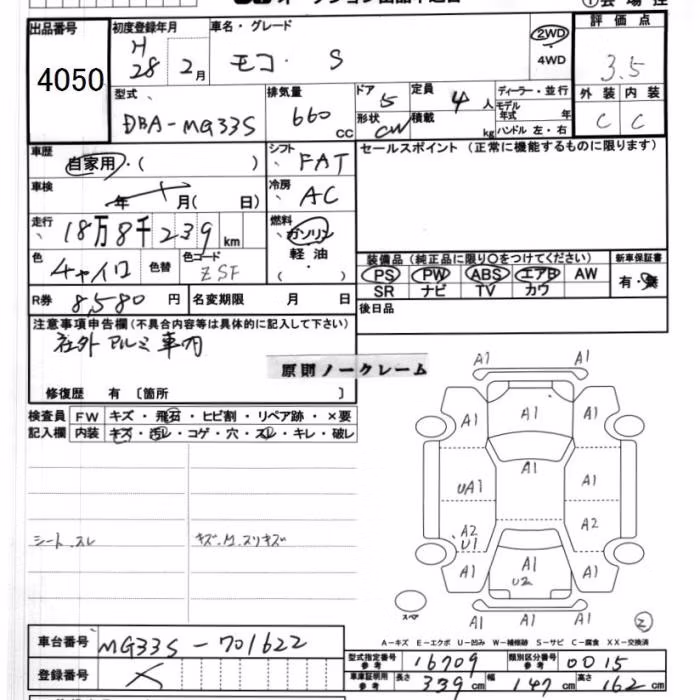 出品番号
4050
初度登録年月
H
28 2月
車名・グレード
モコ・ S
2WD
4WD
評価点
3.5
型式
DBA-MG33S
排気量
660 CC
ドア 5
形状 CW
定員 4 人
積載 kg
ディーラー・並行
モデル年式 年
ハンドル 左・右
外装 内装
C C
車歴
自家用・( )
シフト FAT
セールスポイント (正常に機能するものに限ります)
車検
年 月( 日)
冷房 AC
走行
18万8千239km
燃料
ガソリン
軽油
色
チャイロ
色替
色コード
ZSF
装備品 (純正品に限り○をつけてください)
新車保証書
PS PW ABS エアB AW
有・無
SR ナビ TV カワ
R券 8,580 円
名変期限 月 日
後日品
注意事項申告欄(不具合内容等は具体的に記入して下さい)
社外アルミ車内
原則ノークレーム
修復歴 有 〔箇所 〕
検査員 FW キズ・飛石・ヒビ割・リペア跡・×要
記入欄 内装 キズ・汚レ・コゲ・穴・スレ・キレ・破レ
A1 A1
A1 A1 A1
A1
UA1 A1
A2 A2
U1
A1 A1 A1
U2
シート、スレ
スペア
A-キズ E-エクボ U-凹み W-補修跡 S-サビ C-腐食 XX-交換済
車台番号 MG33S-701622
型式指定番号 16709
類別区分番号 0015
登録番号
車庫証明用参考 長さ参考 339cm 幅 147cm 高さ 162cm